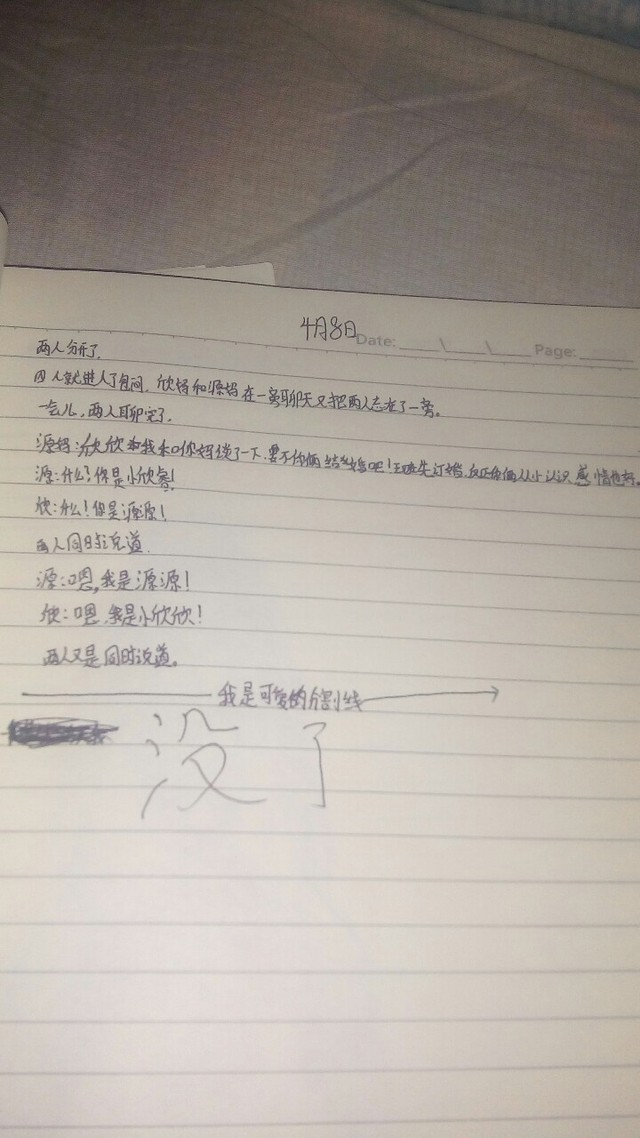 4月8日 Date: ____\____\____ Page: ______
两人分开了.
四人就进入了包间. 欣妈和源妈在一旁聊天又把两人忘在了一旁。
一会儿,两人聊完了.
源妈:欣欣和我和你妈谈了一下.要不你俩结婚吧!先订婚.反正你俩从小认识感情也好.
源:什么?你是小欣欣!
欣:什么!你是源源!
两人同时说道.
源:嗯,我是源源!
欣:嗯.我是小欣欣!
两人又是同时说道。
我是可爱的分割线
没了